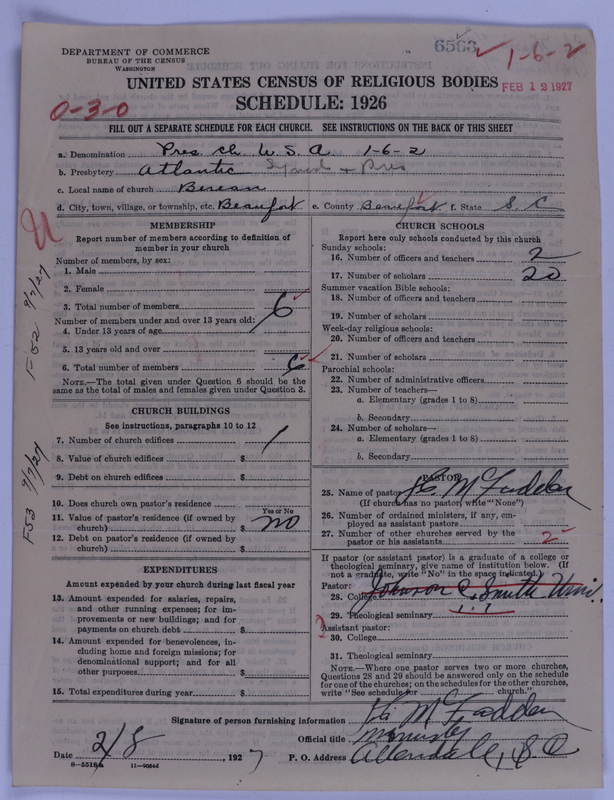 6563 1-6-2
DEPARTMENT OF COMMERCE
BUREAU OF THE CENSUS
WASHINGTON
UNITED STATES CENSUS OF RELIGIOUS BODIES
FEB 12 1927
SCHEDULE: 1926
0-3-0
FILL OUT A SEPARATE SCHEDULE FOR EACH CHURCH. SEE INSTRUCTIONS ON THE BACK OF THIS SHEET
a. Denomination Pres. Ch. U.S.A 1-6-2
b. Presbytery Atlantic
c. Local name of church Berean
d. City, town, village, or township, etc. Beaufort e. County Beaufort f. State S. C.
MEMBERSHIP
Report number of members according to definition of
member in your church
Number of members, by sex:
1. Male
2. Female
3. Total number of members 6
Number of members under and over 13 years old:
4. Under 13 years of age
5. 13 years old and over
6. Total number of members 6
NOTE.—The total given under Question 6 should be
same as the total of males and females given under Question 3.
F-52 9/7/27
F53 9/7/27
CHURCH BUILDINGS
See instructions, paragraphs 10 to 12
7. Number of church edifices 1
8. Value of church edifices $
9. Debt on church edifices $
10. Does church own pastor's residence
Yes or No
11. Value of pastor's residence (if owned by
church) $ no
12. Debt on pastor's residence (if owned by
church) $
EXPENDITURES
Amount expended by your church during last fiscal year
13. Amount expended for salaries, repairs,
and other running expenses; for im-
provements or new buildings; and for
payments on church debt $
14. Amount expended for benevolences, in-
cluding home and foreign missions; for
denominational support; and for all
other purposes $
15. Total expenditures during year $
CHURCH SCHOOLS
Report here only schools conducted by this church
Sunday schools:
16. Number of officers and teachers 2
17. Number of scholars 20
Summer vacation Bible schools:
18. Number of officers and teachers
19. Number of scholars
Week-day religious schools:
20. Number of officers and teachers
21. Number of scholars
Parochial schools:
22. Number of administrative officers
23. Number of teachers—
a. Elementary (grades 1 to 8)
b. Secondary
24. Number of scholars—
a. Elementary (grades 1 to 8)
b. Secondary
PASTOR
25. Name of pastor McFadden
(If church has no pastor write "None")
26. Number of ordained ministers, if any, em-
ployed as assistant pastors
27. Number of other churches served by the
pastor or his assistants 2
If pastor (or assistant pastor) is a graduate of a college or
theological seminary, give name of institution below. (If
not a graduate, write "No" in the space indicated.)
Pastor:
28. College Johnson C. Smith Uni.
29. Theological seminary " "
Assistant pastor:
30. College
31. Theological seminary
NOTE.—Where one pastor serves two or more churches,
Questions 28 and 29 should be answered only on the schedule
for one of the churches; on the schedules for the other churches,
write "See schedule for church."
Signature of person furnishing information McFadden
Official title Minister
Date 2/8, 1927 P. O. Address Allendale, S. C
8-5518a 11-9054d